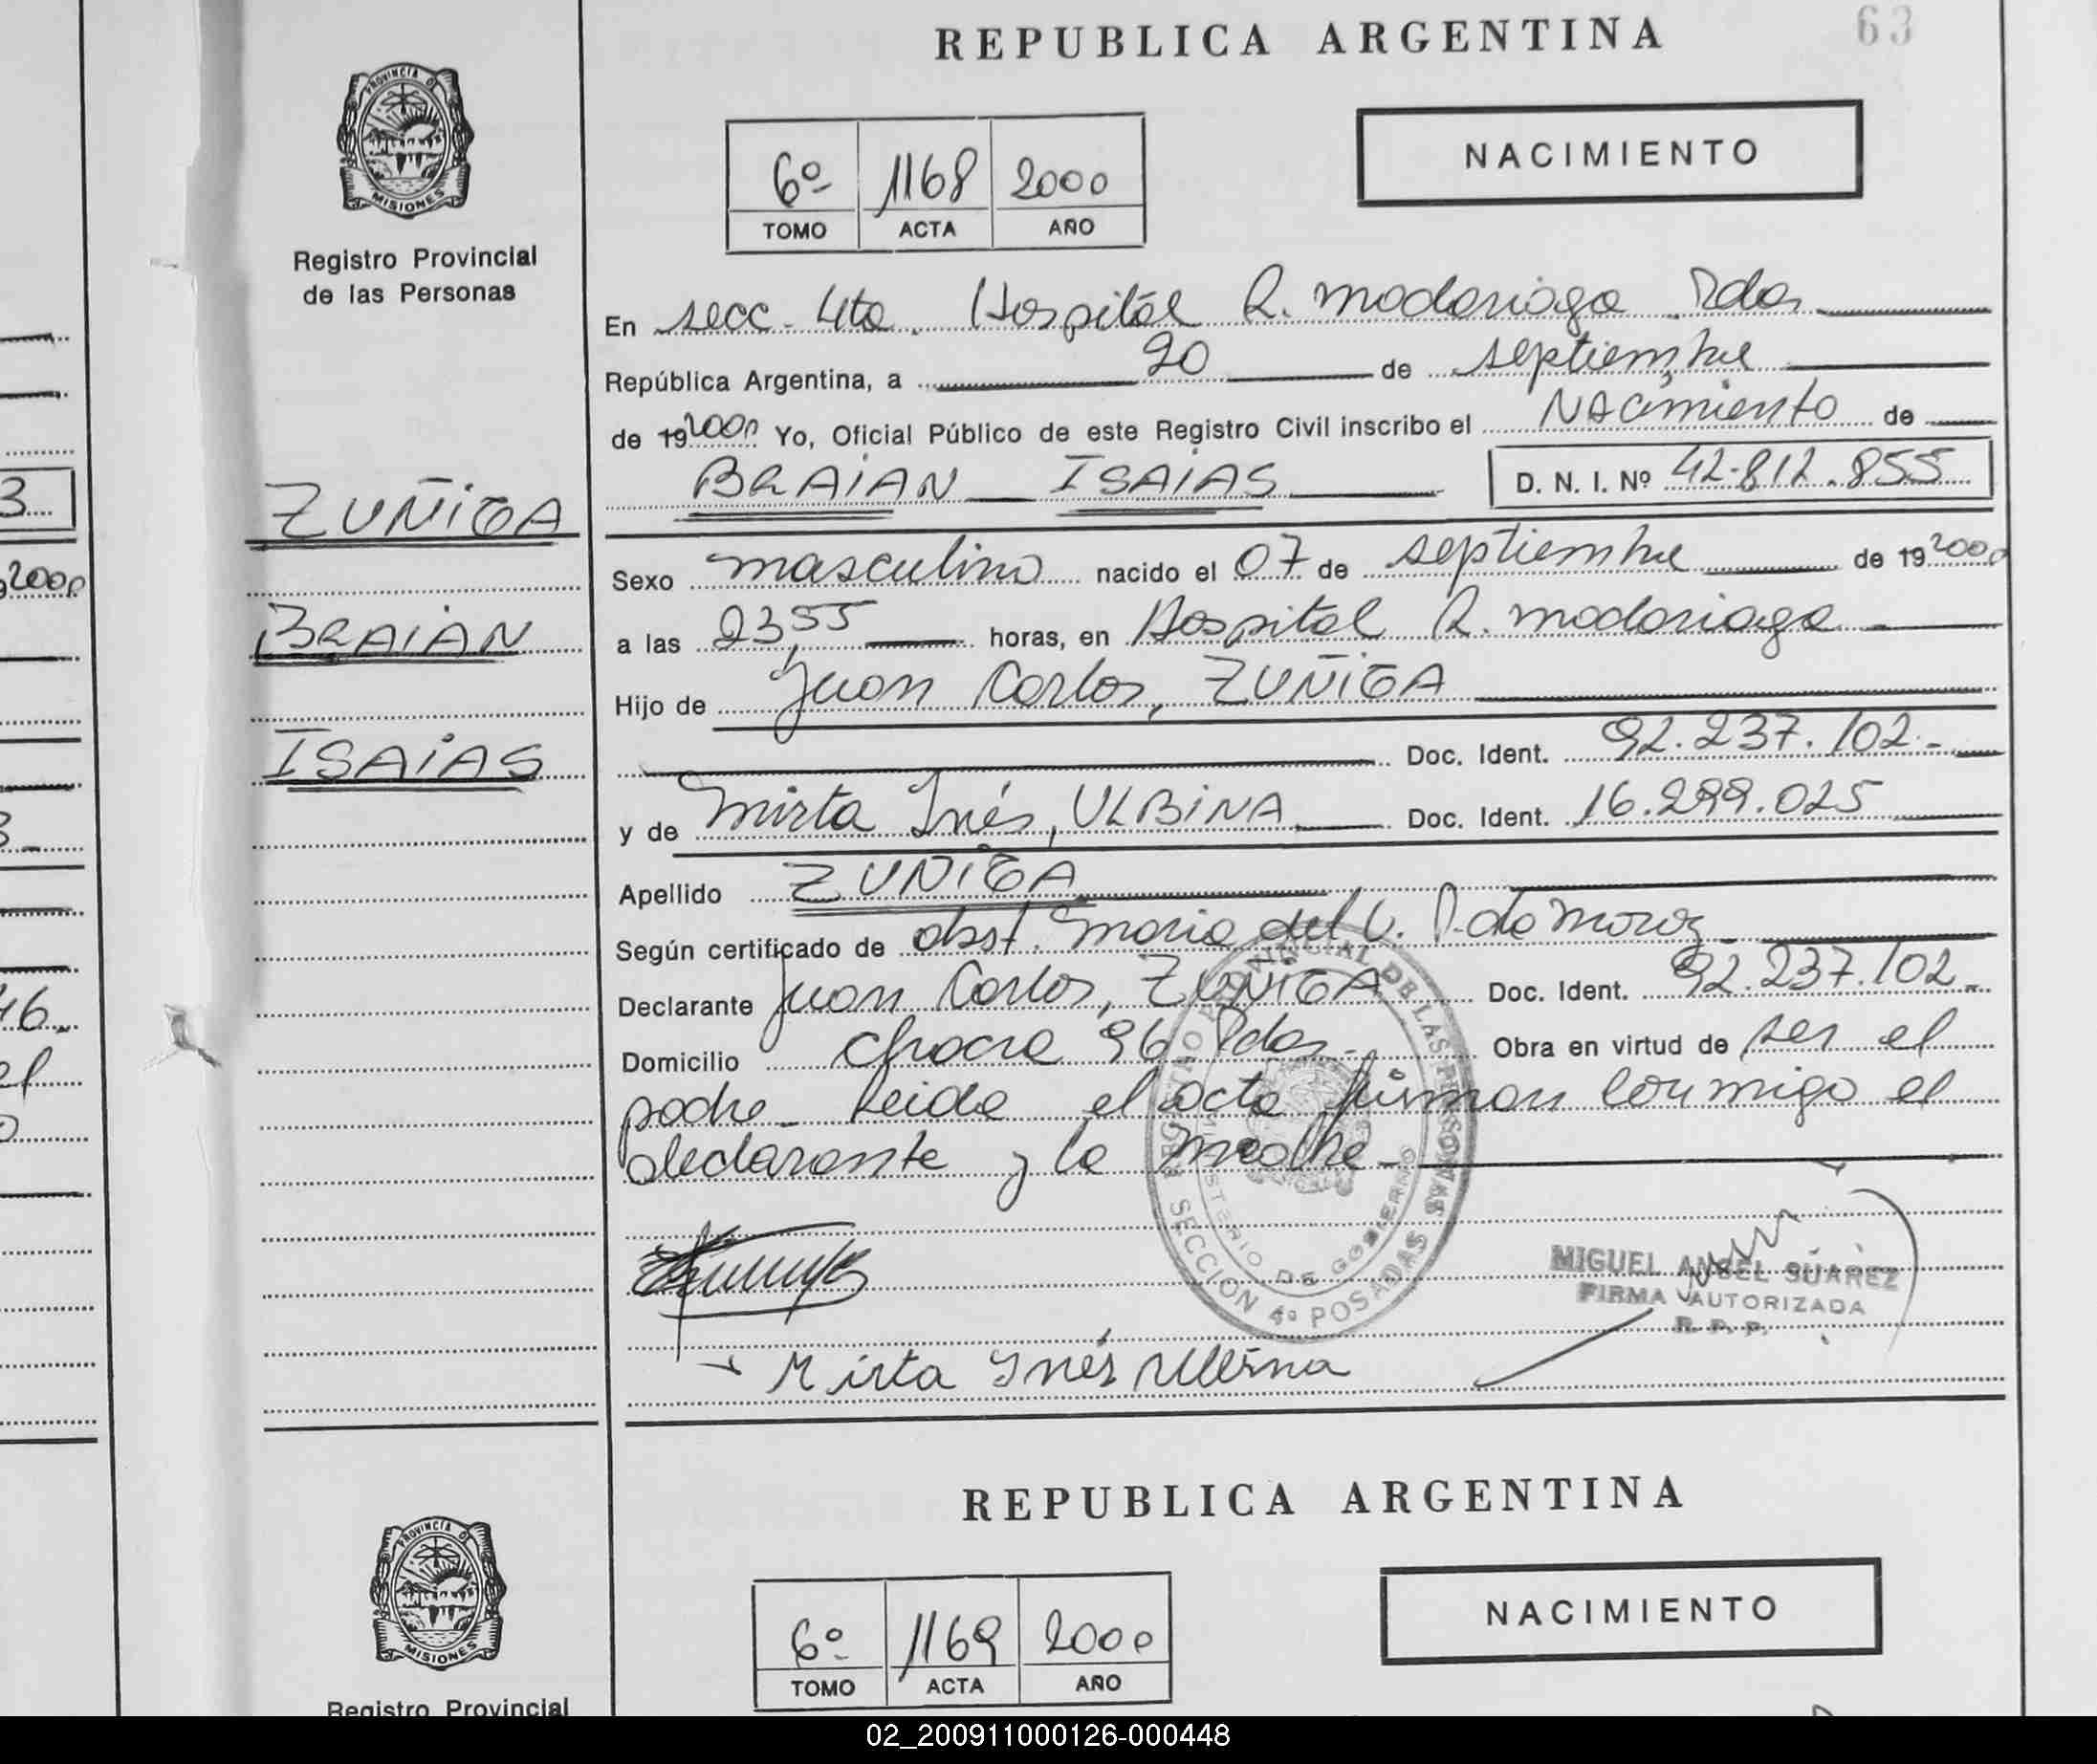 REPUBLICA ARGENTINA
63
PROVINCIA DE
MISIONES
Registro Provincial
de las Personas
6º 1168 2000
TOMO ACTA AÑO
NACIMIENTO
En secc. 4ta. Hospital R. madariaga Pdas
República Argentina, a 20 de septiembre
de 192000 Yo, Oficial Público de este Registro Civil inscribo el Nacimiento de
BRAIAN ISAIAS D. N. I. Nº 42.812.855
ZUÑIGA
BRAIAN
ISAIAS
Sexo masculino nacido el 07 de septiembre de 192000
a las 2355 horas, en Hospital R. madariaga
Hijo de Juan Carlos, ZUÑIGA
Doc. Ident. 92.237.102.
y de Mirta Inés, ULBINA Doc. Ident. 16.299.025
Apellido ZUÑIGA
Según certificado de obst. Maria del C. P. de
Declarante Juan Carlos, ZUÑIGA Doc. Ident. 92.237.102.
Domicilio chacra 96 Pdas. Obra en virtud de ser el
padre. Leida el acta firman conmigo el
declarante y la madre.
REGISTRO PROVINCIAL DE LAS PERSONAS
MINISTERIO DE GOBIERNO
SECCION 4º POSADAS
MIGUEL ANGEL SUAREZ
FIRMA AUTORIZADA
R. P. P.
Mirta Inés Ulbina
REPUBLICA ARGENTINA
PROVINCIA DE
MISIONES
Registro Provincial
6º 1169 2000
TOMO ACTA AÑO
NACIMIENTO
02_200911000126-000448